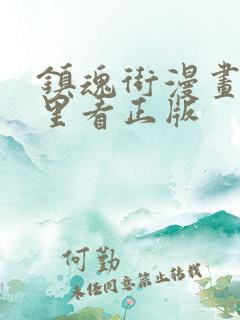 鎮魂街漫畫
里看正版
何勤
未经同意禁止转载